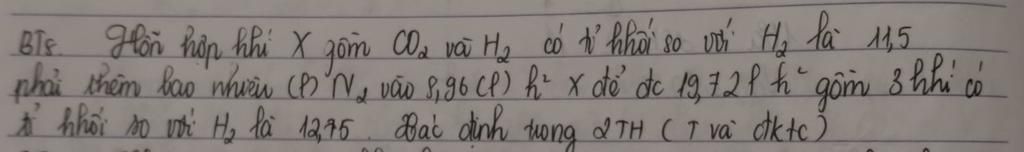 BT8. Hỗn hợp khí X gồm CO2 và H2 có tỉ khối so với H2 là 11,5
phải thêm bao nhiêu (l) N2 vào 8,96 (l) h² X để đc 19,72 l h² gồm 3 khí có
tỉ khối so với H2 là 12,75. Xác định trong 2TH (T và đktc)